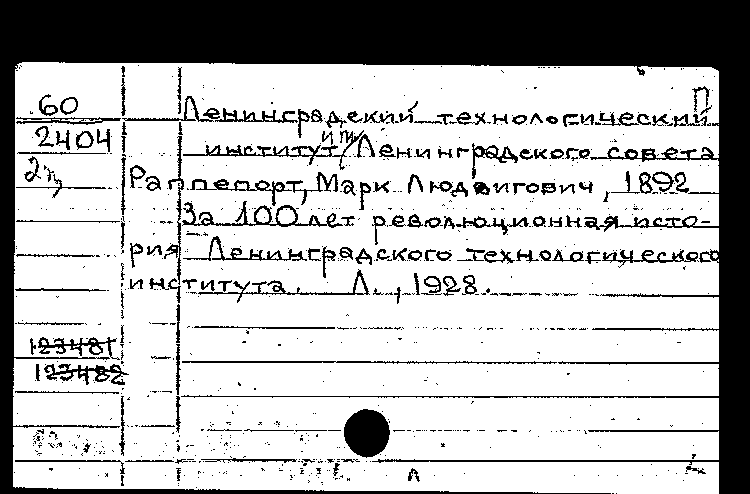 П
60
Ленинградский технологический
2404
институт Ленинградского совета
2э
Раппепорт, Марк Людвигович, 1892
За 100 лет революционная исто-
рия Ленинградского технологического
института. Л., 1928.
123481
123482
л